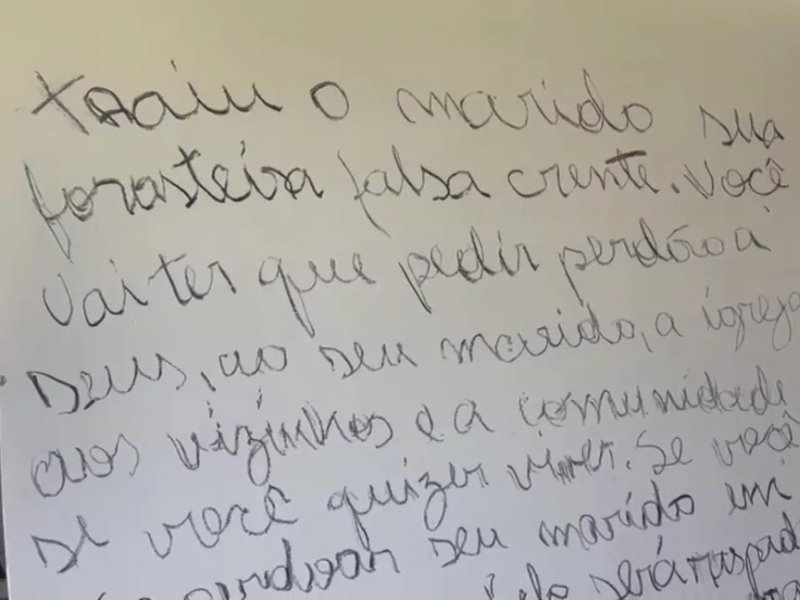 traiu o marido sua
forasteira falsa crente. Você
vai ter que pedir perdão a
Deus, ao seu marido, a igreja
aos vizinhos e a comunidade
se você quizer viver. Se você
perdoar seu marido em
será raspad